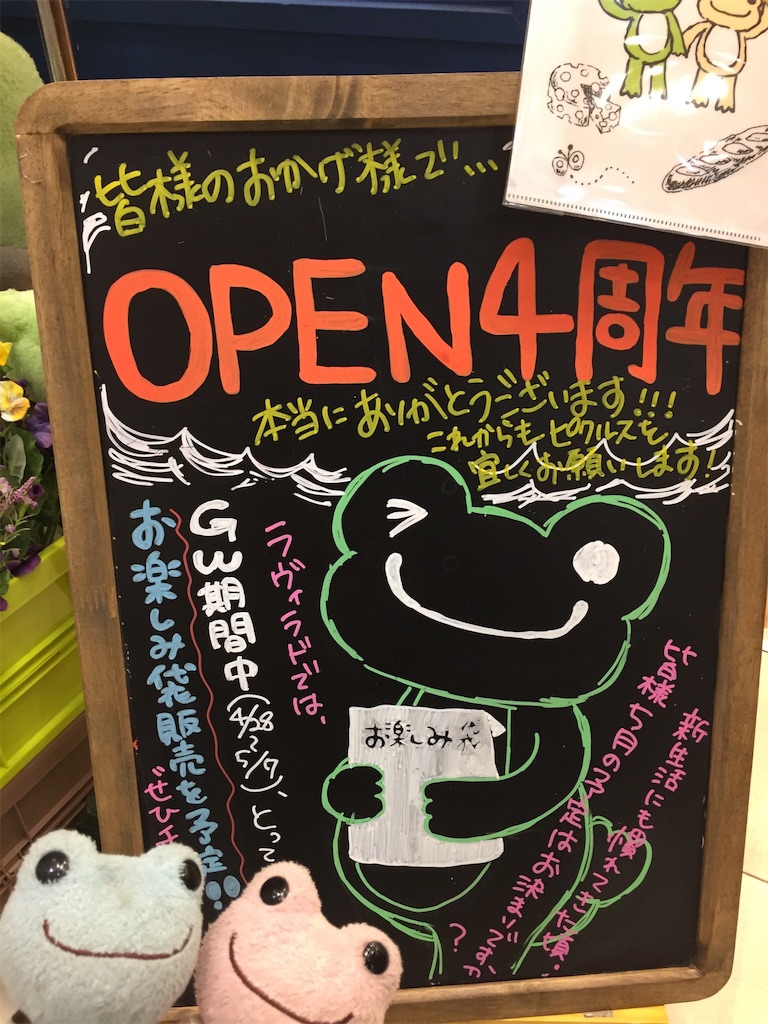 皆様のおかげ様で…
OPEN4周年
本当にありがとうございます!!!
これからもピクルスを
宜しくお願いします!
新生活にも慣れてきた頃、
皆様
の予定はお決まりですか
?
ラヴィラゴでは、
GW期間中(4/28~5/7)、とって
お楽しみ袋販売を予定!!
ぜひ
お楽しみ袋